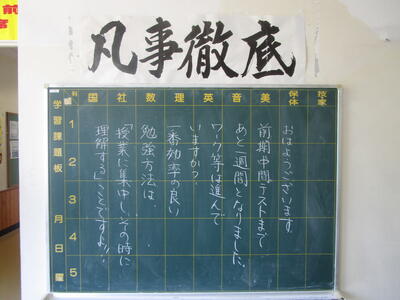 凡事徹底
技家
保体
美
音
英
理
数
社
国
科
1
2
3
4
5
学習課題板
月
日
曜
おはようございます
前期中間テストまで
あと一週間となりました。
ワーク等は進んで
いますか?
一番効率の良い
勉強方法は、
「授業に集中し、その時に
理解する」ことですよ!!
前